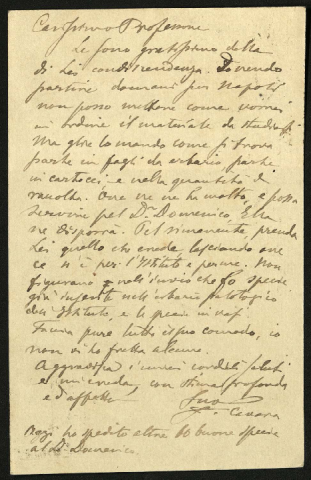 Carissimo Professore
Le sono gratissimo della
di Lei condiscendenza. Dovendo
partire domani per Napoli
non posso mettere come vorrei
in ordine il materiale da studiarsi
Ma glie lo mando come si trova
parte in fogli da erbario parte
in cartocci e nella quantità di
raccolta. Ove ve ne ha molto, e possa
servire pel Dr. Domenico, Ella
ne disporrà. Pel rimanente prenda
Lei quello che crede lasciando ove
ce n'è per l'Istituto e per me. Non
figurano nell'invio che fo specie
già inserite nell'erbario patologico
dell'Istituto, e le specie in
Faccia pure tutto a suo comodo, io
non vi ho fretta alcuna.
Aggradisca i miei cordiali saluti
e mi creda, con stima profonda
ed affetto
Suo
F. Cavara
Oggi ho spedito altre 60 buone specie
al Dr. Domenico